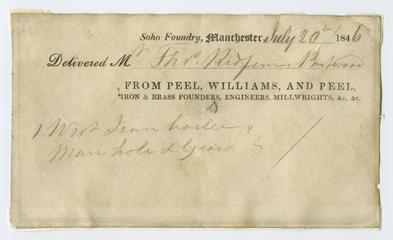 Soho Foundry, Manchester July 20th 1846
Delivered Mr Thos. Redfern
FROM PEEL, WILLIAMS, AND PEEL,
IRON & BRASS FOUNDERS, ENGINEERS, MILLWRIGHTS, &c. &c.
1 Wrot Iron boiler
Manhole &